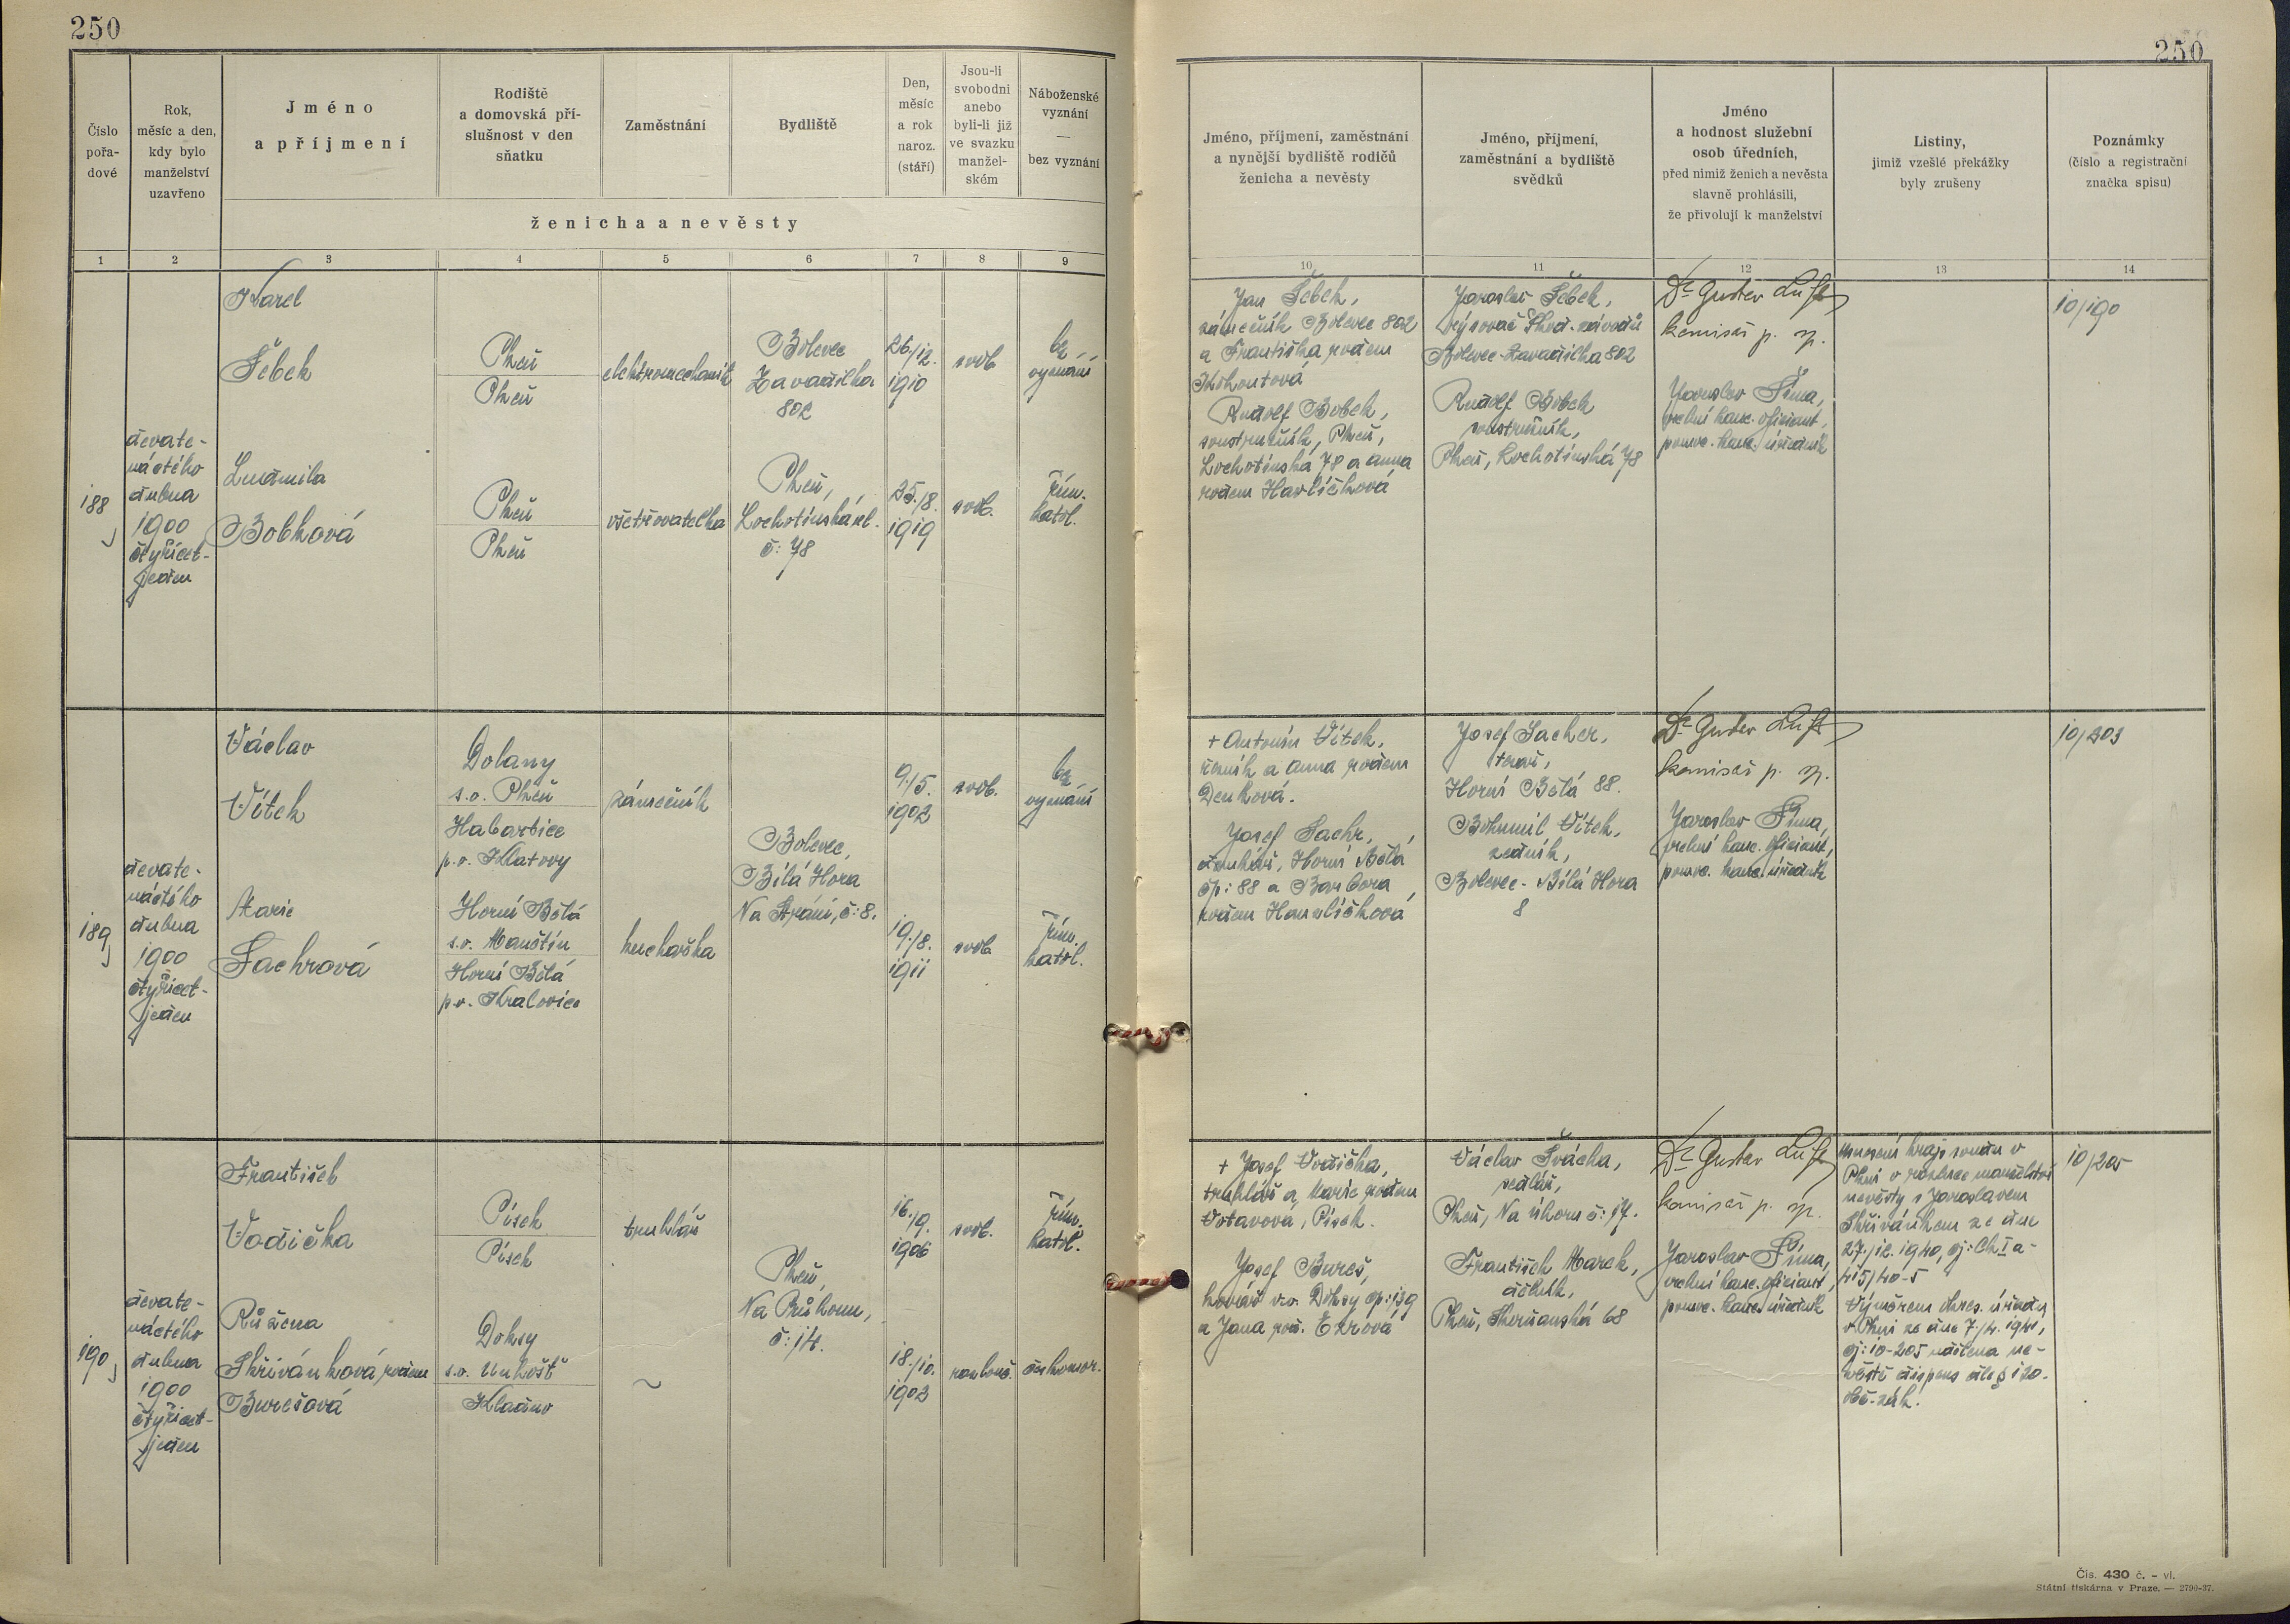 250
250
Číslo
pořa-
dové
Rok,
měsíc a den,
kdy bylo
manželství
uzavřeno
Jméno
a příjmení
Rodiště
a domovská pří-
slušnost v den
sňatku
Zaměstnání
Bydliště
Den,
měsíc
a rok
naroz.
(stáří)
Jsou-li
svobodni
anebo
byli-li již
ve svazku
manžel-
ském
Náboženské
vyznání
—
bez vyznání
ženicha a nevěsty
Jméno, příjmení, zaměstnání
a nynější bydliště rodičů
ženicha a nevěsty
Jméno, příjmení,
zaměstnání a bydliště
svědků
Jméno
a hodnost služební
osob úředních,
před nimiž ženich a nevěsta
slavně prohlásili,
že přivolují k manželství
Listiny,
jimiž vzešlé překážky
byly zrušeny
Poznámky
(číslo a registrační
značka spisu)
1 2 3 4 5 6 7 8 9 10 11 12 13 14
188
devate-
náctého
dubna
1900
čtyřicet-
jeden
Karel
Šebek
Plzeň
Plzeň
elektromechanik
Bolevec
Zavadilka
802
26./12.
1910
svob.
bez
vyznání
Ludmila
Bobková
Plzeň
Plzeň
ošetřovatelka
Plzeň,
Lochotínská ul.
č: 78
25./8.
1919
svob.
řím.
katol.
Jan Šebek,
zámečník Bolevec 802
a Františka rodem
Kohoutová
Rudolf Bobek,
soustružník, Plzeň,
Lochotínská 78 a Anna
rodem Havlíčková
Jaroslav Šebek,
rýsovač Škod. závodů
Bolevec-Zavadilka 802
Rudolf Bobek
soustružník,
Plzeň, Lochotínská 78
Dr Gustav Luft
komisař p. sp.
Jaroslav Šíma,
vrchní kanc. oficiant,
pověř. kanc. úředník
10/190
189
devate-
náctého
dubna
1900
čtyřicet-
jeden
Václav
Vítek
Dolany
s.o. Plzeň
Habartice
p.o. Klatovy
zámečník
Bolevec,
Bílá Hora
Na Stráni, č: 8.
9./5.
1902
svob.
bez
vyznání
Marie
Sachrová
Horní Bělá
s.o. Manětín
Horní Bělá
p.o. Kralovice
kuchařka
19./8.
1911
svob.
řím.
katol.
+ Antonín Vítek,
řezník a Anna rodem
Denková.
Josef Sachr,
Horní Bělá
čp: 88 a Barbora,
rodem Hamalíčková
Josef Sacher,
tesař,
Horní Bělá 88.
Bohumil Vítek,
zedník,
Bolevec - Bílá Hora
8
Dr Gustav Luft
komisař p. sp.
Jaroslav Šíma,
vrchní kanc. oficiant,
pověř. kanc. úředník
10/203
190
devate-
náctého
dubna
1900
čtyřicet-
jeden
František
Vodička
Písek
Písek
truhlář
Plzeň,
Na Průhonu,
č: 14.
16./9.
1906
svob.
řím.
katol.
Růžena
Skřivánková, rodem
Burešová
Doksy
s.o. Unhošť
Kladno
~
18./10.
1903
rozlouč.
českomor.
+ Josef Vodička,
truhlář a Marie rodem
Votavová, Písek.
Josef Bureš,
kovář v.v. Doksy čp: 139
a Jana roz. Exrová
Václav Švácha,
sedlář,
Plzeň, Na úhoru č: 17.
František Marek,
dělník,
Plzeň, Skvrňanská 68
Dr Gustav Luft
komisař p. sp.
Jaroslav Šíma,
vrchní kanc. oficiant,
pověř. kanc. úředník
Usnesení kraj. soudu v
Plzni o rozluce manželství
nevěsty s Jaroslavem
Skřivánkem ze dne
27./12. 1940, čj: Ck I a-
415/40-5
Výměrem okres. úřadu
v Plzni ze dne 7./4. 1941,
čj: 10-205 udělena ne-
věstě dispens dle § 120.
obč. zák.
10/205
Čís. 430 č. - vl.
Státní tiskárna v Praze. — 2790-37.